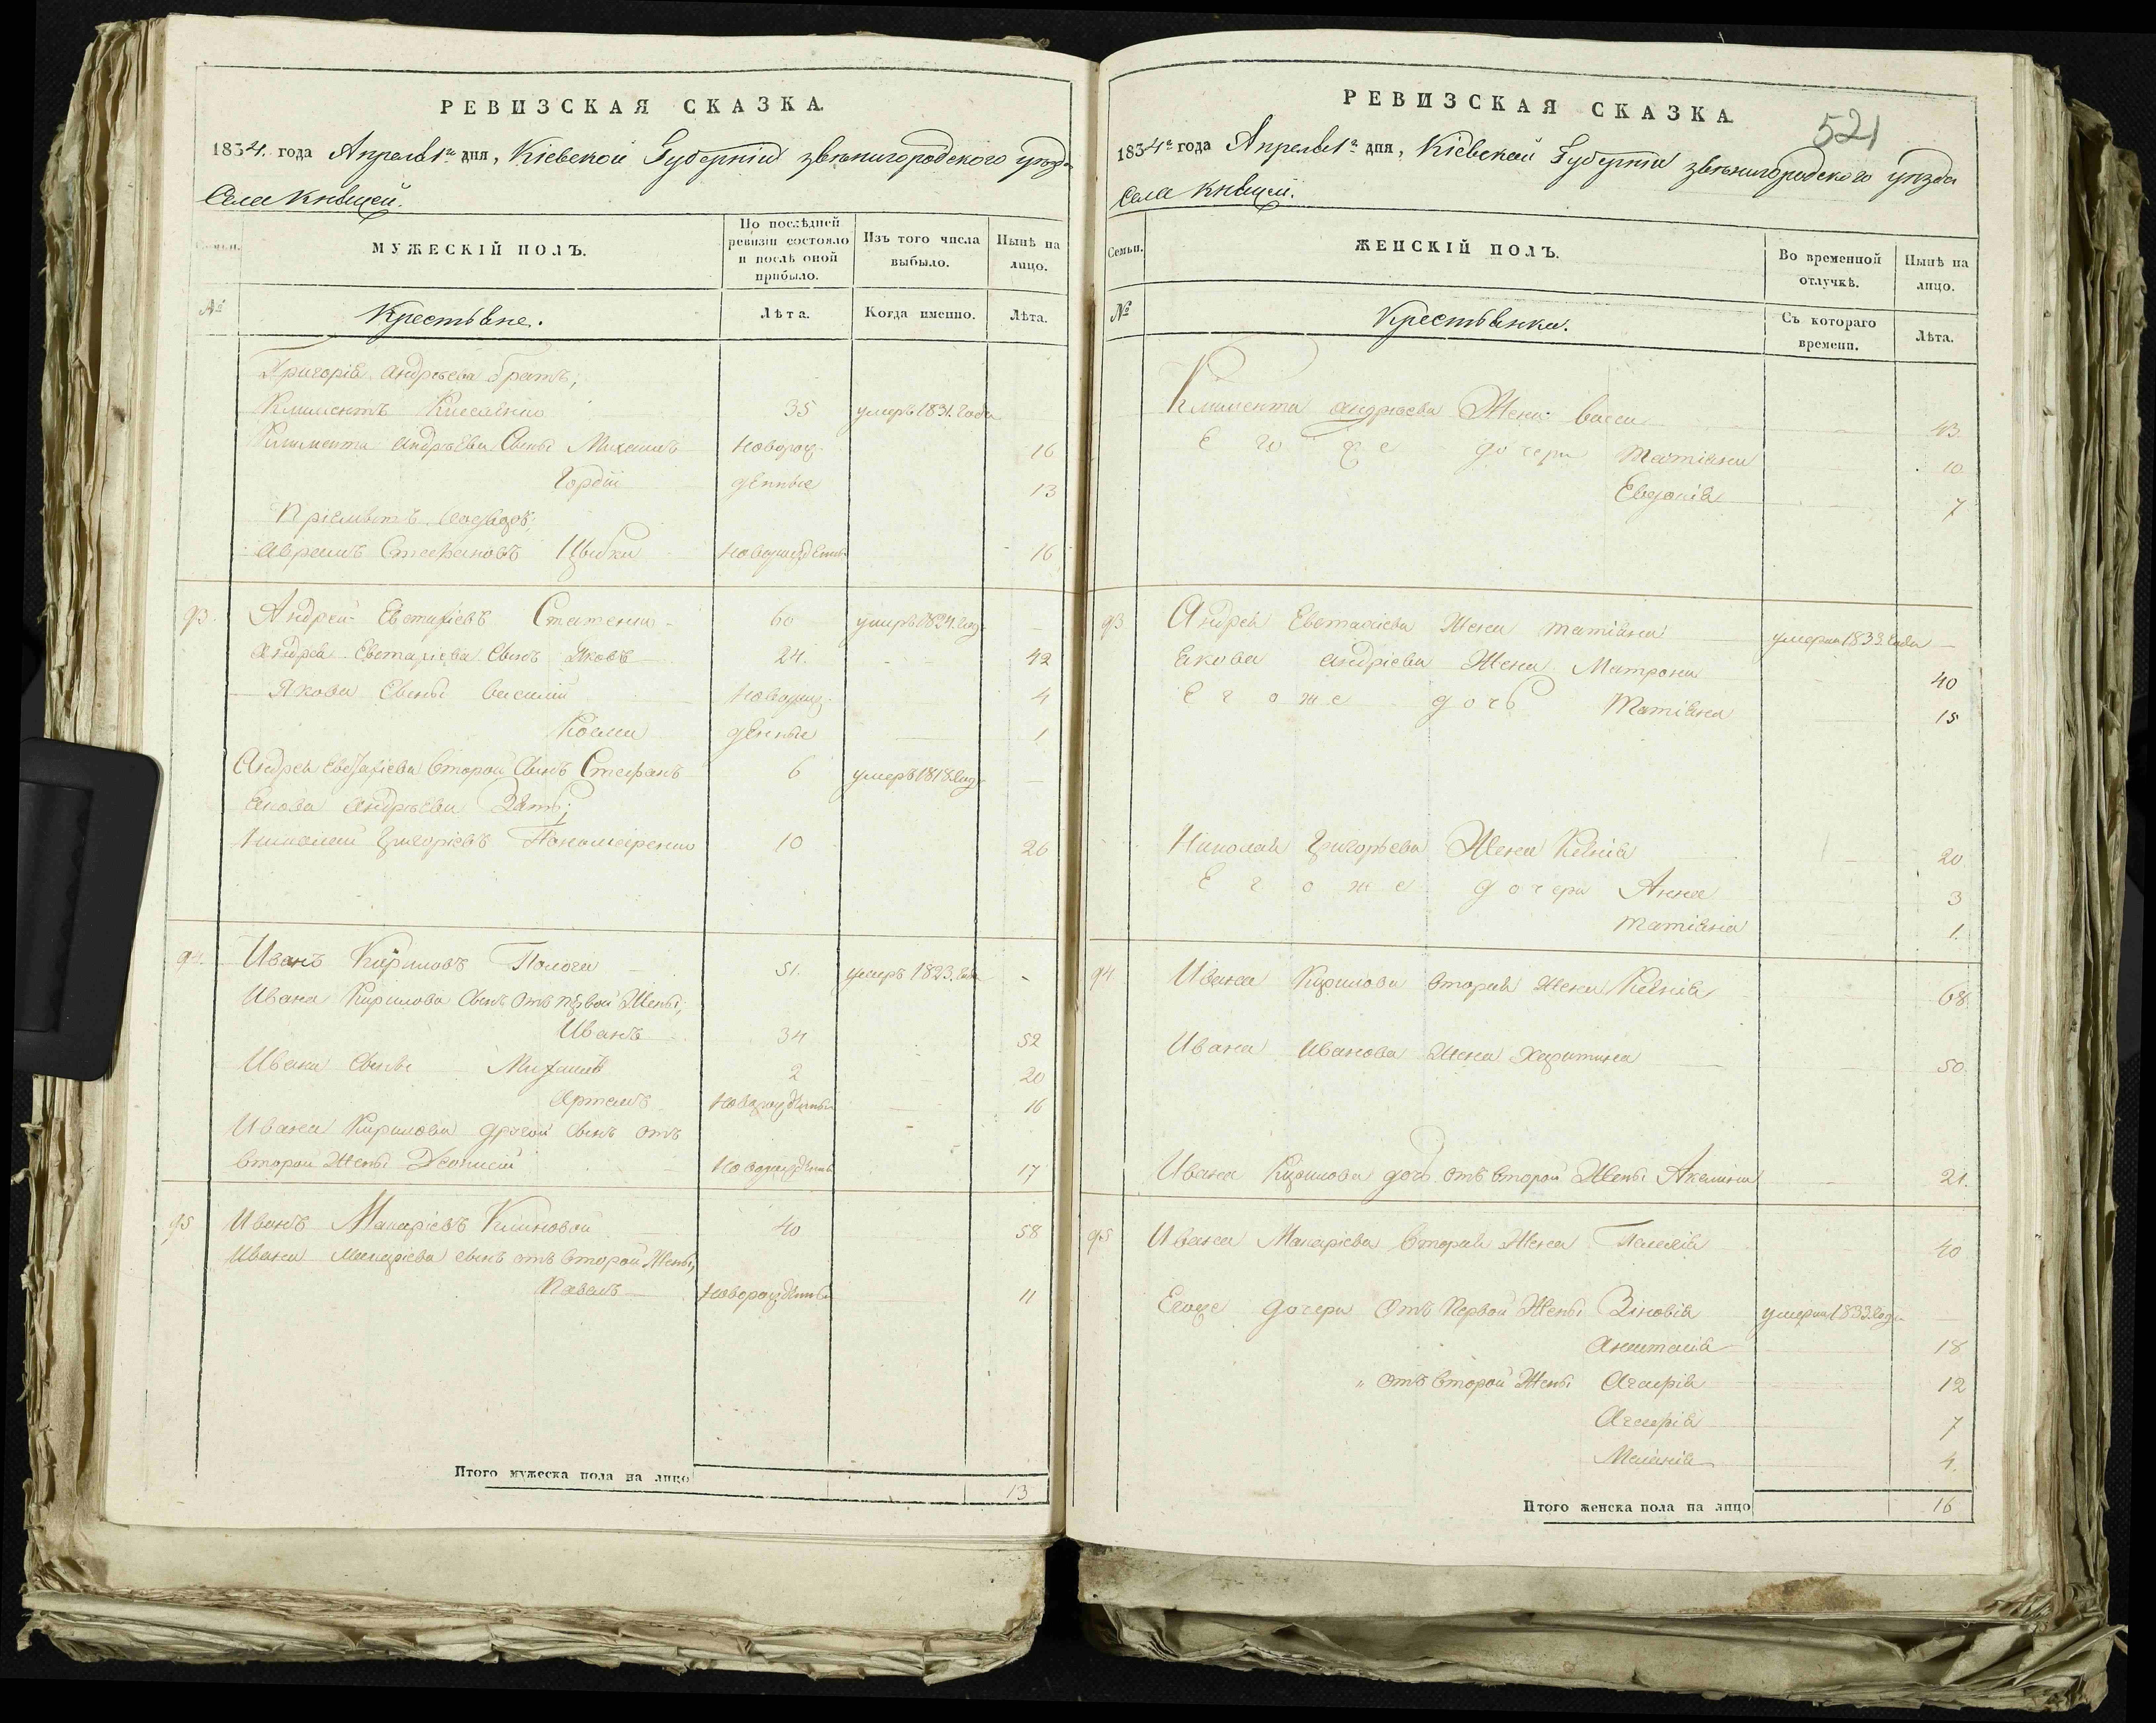 РЕВИЗСКАЯ СКАЗКА
1834. года Апреля 1го дня, Кіевской Губерніи звенигородского уезда
Села Княжей.
Семьи.
МУЖЕСКІЙ ПОЛЪ.
По послѣдней ревизіи состояло и послѣ оной прибыло.
Изъ того числа выбыло.
Нынѣ на лицо.
№
Крестьяне.
Лѣта.
Когда именно.
Лѣта.
Григорія Андреева братъ,
Климентъ 35 умеръ 1831. года
Климента Андрѣева Сыны Михаилъ Новорож 16
Гордій денные 13
Пріемышъ
Аврамъ Стефановъ Новорожденъ 16
93. Андрей Евстафіевъ 60 умеръ 1824. год —
Андрея Евстафіева Сынъ Яковъ 24. 42
Якова Сыны Василій Новорож 4
Косма денные 1
Андрея Евстафіева Второй Сынъ Стефанъ 6 умеръ 1818. год —
Якова Андрѣева Зять;
Николай Григоріевъ Пономаренко 10 26
94. Иванъ Кириловъ Полога 51. умеръ 1823. года -
Ивана Кирилова Сынъ отъ первой Жены,
Иванъ 34 52
Ивана Сыны Михаилъ 2 20
Артемъ Новорожденны 16
Ивана Кирилова другой Сынъ отъ
второй Жены Діонисій Новорожденъ 17
95 Иванъ Макаріевъ 40 58
Ивана Макаріева сынъ отъ второй Жены,
Павелъ Новорожденны 11
Итого мужеска пола на лицо 13
РЕВИЗСКАЯ СКАЗКА
521
1834го года Апреля 1го дня, Кіевской Губерніи звенигородского уезда
Села Княжей.
Семьи.
ЖЕНСКІЙ ПОЛЪ.
Во временной отлучкѣ.
Нынѣ на лицо.
№
Крестьянки.
Съ котораго времени.
Лѣта.
Климента Андреева Жена Васса 43.
Его же дочери Татіяна 10
Евдокія 7
93 Андрея Евстафіева Жена Татіяна умерла 1833. года —
Якова Андріева Жена Матрона 40
Его же дочь Татіяна 15
Николая Григорьева Жена Ксенія 20
Его же дочери Анна 3
Татіяна 1.
94 Ивана Кирилова вторая Жена Ксенія 68.
Ивана Иванова Жена Харитина 50.
Ивана Кирилова дочь отъ второй Жены Акелина 21.
95 Ивана Макаріева Вторая Жена Пелагія 40
Егоже дочери Отъ Первой Жены Зіновія умерла 1833. года
Анастасія 18
" Отъ Второй Жены Агафія 12
Агафія 7
Меланія 4.
Итого женска пола на лицо 16